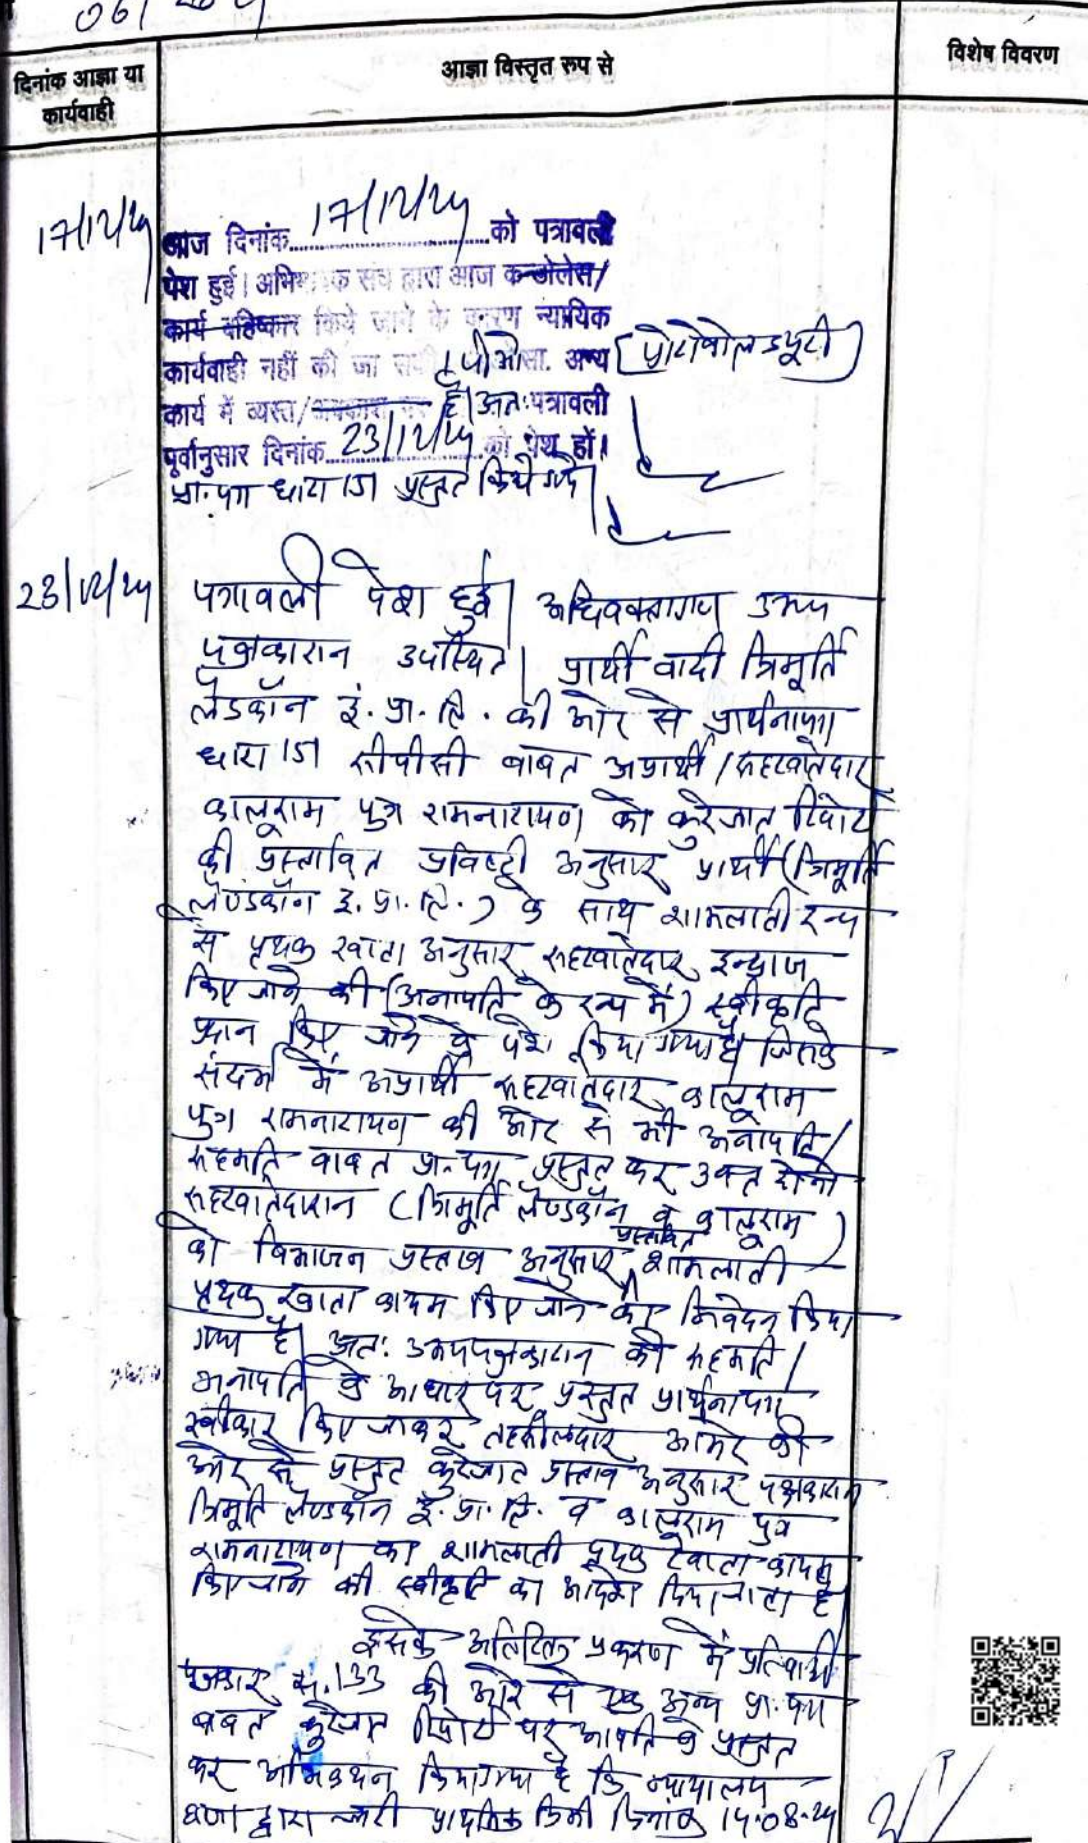 06/
दिनांक आज्ञा या
कार्यवाही
आज्ञा विस्तृत रूप से
विशेष विवरण
17/12/24
आज दिनांक 17/12/24 को पत्रावली
पेश हुई। अभिभाषक संघ द्वारा आज कन्डोलेस/
कार्य बहिष्कार किये जाने के कारण न्यायिक
कार्यवाही नहीं की जा अन्य (प्रोटोकोल ड्यूटी)
कार्य में व्यस्त/अवकाश पर है। अतः पत्रावली
पूर्वानुसार दिनांक 23/12/24 को पेश हों।
प्रा.पत्र धारा 151 प्रस्तुत किये गये।
23/12/24
पत्रावली पेश हुई। अधिवक्तागण उभय
पक्षकारान उपस्थित। प्रार्थी वादी त्रिमूर्ति
लैंडकॉन इं. प्रा. लि. की ओर से प्रार्थनापत्र
धारा 151 सीपीसी बाबत अप्रार्थी/सहखातेदार
कालूराम पुत्र रामनारायण को कुरेजात रिपोर्ट
की प्रस्तावित प्रविष्टी अनुसार प्रार्थी (त्रिमूर्ति
लैण्डकॉन इं. प्रा. लि.) के साथ शामलाती रूप
से पृथक खाता अनुसार सहखातेदार इन्द्राज
किए जाने की (अनापति के रूप में) स्वीकृति
प्रदान किए जाने के पेश किया गया है। जिसके
संदर्भ में अप्रार्थी सहखातेदार कालूराम
पुत्र रामनारायण की ओर से भी अनापति/
सहमति बाबत प्रा.पत्र प्रस्तुत कर उक्त दोनों
सहखातेदारान (त्रिमूर्ति लैण्डकॉन व कालूराम)
को विभाजन प्रस्ताव अनुसार प्रस्तावित शामलाती
पृथक खाता कायम किए जाने का निवेदन किया
गया है। अतः उभयपक्षकारान की सहमति/
अनापति के आधार पर प्रस्तुत प्रार्थनापत्र
स्वीकार किए जाकर तहसीलदार आमेर की
ओर से प्रस्तुत कुरेजात प्रस्ताव अनुसार पक्षकारान
त्रिमूर्ति लैण्डकॉन इं. प्रा. लि. व कालूराम पुत्र
रामनारायण का शामलाती पृथक खाता कायम
किए जाने की स्वीकृति का आदेश दिया जाता है।
इसके अतिरिक्त प्रकरण में प्रतिवादी
पक्षकार सं. 133 की ओर से एक अन्य प्रा.पत्र
बाबत कुरेजात रिपोर्ट पर आपति के प्रस्तुत
कर अभिकथन किया गया है कि न्यायालय
द्वारा जारी प्राथमिक डिक्री दिनांक 14-08-24